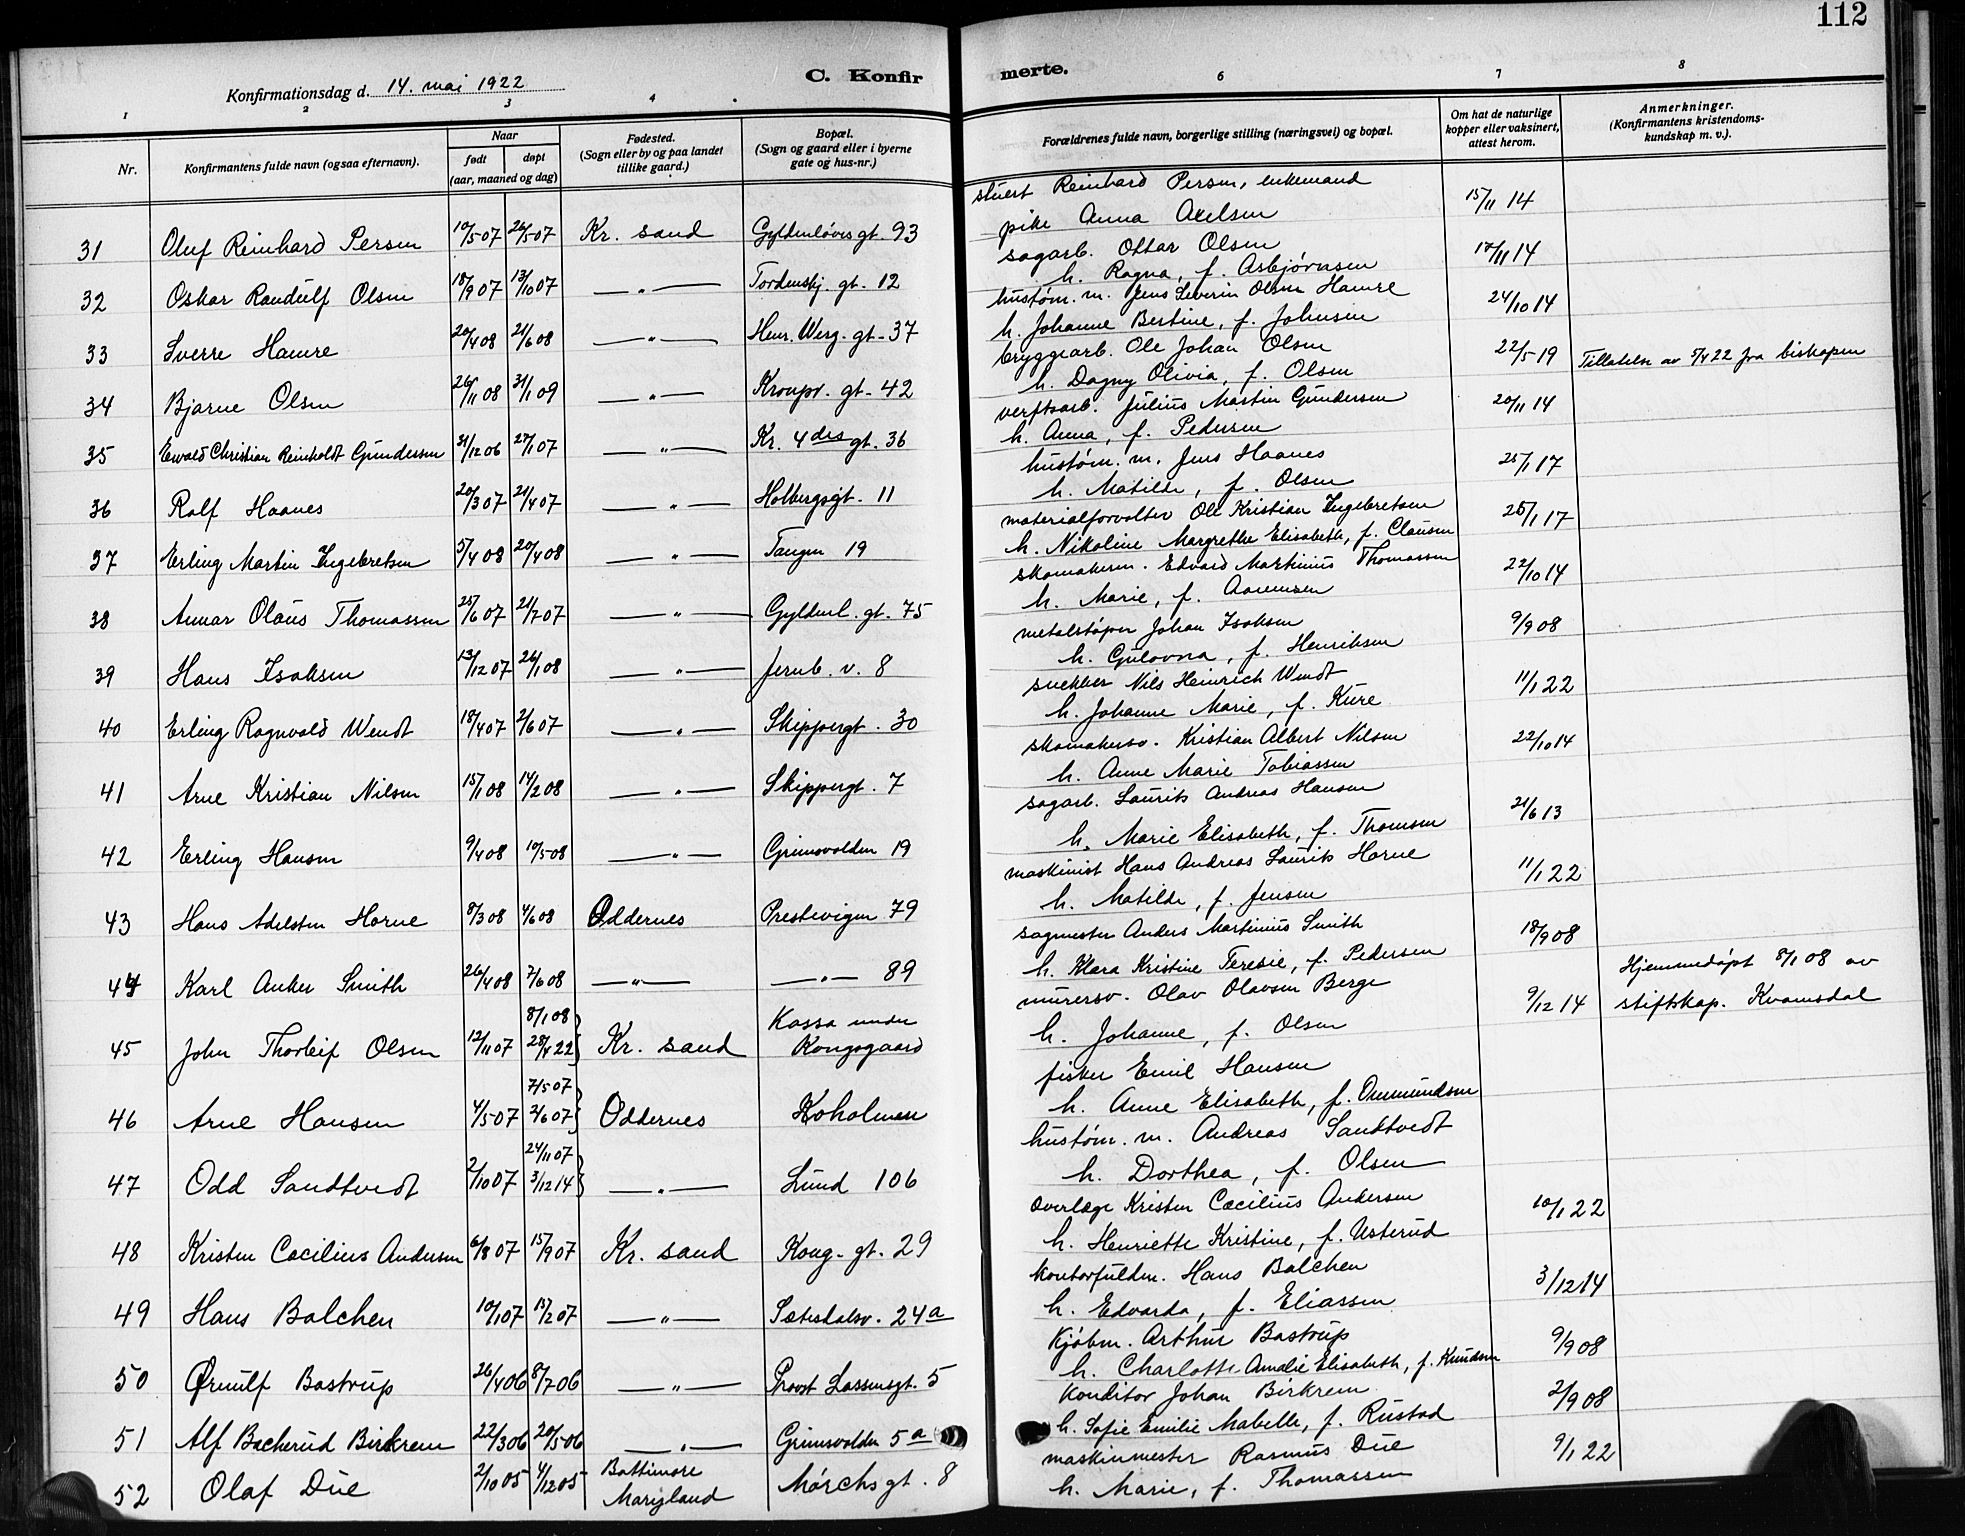 112
Konfirmationsdag d. 14. mai 1922
C. Konfirmerte.
1 2 3 4 6 7 8
Nr.
Konfirmantens fulde navn (ogsaa efternavn).
Naar
født døpt
(aar, maaned og dag)
Fødested.
(Sogn eller by og paa landet
tillike gaard.)
Bopæl.
(Sogn og gaard eller i byerne
gate og hus-nr.)
Forældrenes fulde navn, borgerlige stilling (næringsvei) og bopæl.
Om hat de naturlige
kopper eller vaksinert,
attest herom.
Anmerkninger.
(Konfirmantens kristendoms-
kundskap m. v.).
stuert Reinhard Persen, enkemand
pike Anna Axelsen
31 Oluf Reinhard Persen 10/5 07 26/5 07 Kr. sand Gyldenløves gt. 93 15/11 14
sagarb. Ottar Olsen
h. Ragna, f. Asbjørnsen
32 Oskar Randulf Olsen 18/9 07 13/10 07 — " — Tordenskj. gt. 12 17/11 14
hustøm. m. Jens Severin Olsen Hamre
h. Johanne Bertine, f. Johnsen
33 Sverre Hamre 20/4 08 21/6 08 — " — Henr. Werg. gt. 37 24/10 14
bryggearb. Ole Johan Olsen
h. Dagny Olivia, f. Olsen
34 Bjarne Olsen 26/11 08 31/1 09 — " — Kronpr. gt. 42 22/5 19 Tillatelse av 5/4 22 fra biskopen
verftsarb. Julius Martin Gundersen
h. Anna, f. Pedersen
35 Ewald Christian Reinholdt Gundersen 31/12 06 27/1 07 — " — Kr. 4des gt. 36 20/11 14
hustøm. m. Jens Haanes
h. Matilde, f. Olsen
36 Ralf Haanes 20/3 07 21/4 07 — " — Holbergsgt. 11 25/1 17
materialforvalter Ole Kristian Ingebretsen
h. Nikoline Margrethe Elisabeth, f. Clausen
37 Erling Martin Ingebretsen 5/4 08 20/4 08 — " — Tangen 19 25/1 17
skomakerm. Edvard Martinius Thomassen
h. Marie, f. Aanensen
38 Annar Olaus Thomassen 25/6 07 21/7 07 — " — Gyldenl. gt. 75 22/10 14
metalstøper Johan Isaksen
h. Gulovna, f. Henriksen
39 Hans Isaksen 13/12 07 26/1 08 — " — Jernb. v. 8 9/9 08
snekker Nils Heinrich Wendt
h. Johanne Marie, f. Kure
40 Erling Ragnvald Wendt 18/4 07 2/6 07 — " — Skippergt. 30 11/1 22
skomakersv. Kristian Albert Nilsen
h. Anne Marie Tobiassen
41 Arne Kristian Nilsen 15/1 08 14/2 08 — " — Skippergt. 7 22/10 14
sagarb. Laurits Andreas Hansen
h. Marie Elisabeth, f. Thomsen
42 Erling Hansen 9/4 08 10/5 08 — " — Grimsvolden 19 21/6 13
maskinist Hans Andreas Laurits Horne
h. Matilde, f. Jensen
43 Hans Adelsten Horne 8/3 08 4/6 08 Oddernes Prestvigen 79 11/1 22
sagmester Anders Martinius Smith
h. Klara Kristine Teresie, f. Pedersen
44 Karl Anker Smith 26/4 08 7/6 08 — " — — " — 89 18/9 08
murersv. Olav Olavsen Berge
h. Johanne, f. Olsen
45 John Thorleif Olsen 12/11 07 8/1 08 28/4 22 Kr. sand Kassa under Kongsgaard 9/12 14 Hjemmedøpt 8/1 08 av
stiftskap. Kvamsdal
fisker Emil Hansen
h. Anne Elisabeth, f. Ommundsen
46 Arne Hansen 4/5 07 7/5 07 2/6 07 Oddernes Koholmen
hustøm. m. Andreas Sandtvedt
h. Dorthea, f. Olsen
47 Odd Sandtvedt 2/10 07 24/11 07 3/12 14 — " — Lund 106
overlæge Kristen Cæcilius Andersen
h. Henriette Kristine, f. Usterud
48 Kristen Cæcilius Andersen 6/8 07 15/9 07 Kr. sand Kong. gt. 29 10/1 22
kontorfuldm. Hans Balchen
h. Edvarda, f. Eliassen
49 Hans Balchen 10/1 07 15/2 07 — " — Setesdalsv. 24a 3/12 14
kjøbm. Arthur Bastrup
h. Charlotte Amalie Elisabeth, f. Knudsen
50 Ørnulf Bastrup 26/4 06 8/7 06 — " — Provst Lassensgt. 5 9/9 08
konditor Johan Birkrem
h. Sofie Emilie Mabelle, f. Rustad
51 Alf Backerud Birkrem 22/3 06 20/5 06 — " — Grimsvolden 5a 2/9 08
maskinmester Rasmus Due
h. Marie, f. Thomassen
52 Olaf Due 2/10 05 4/12 05 Baltimore Maryland Mørchs gt. 8 9/1 22